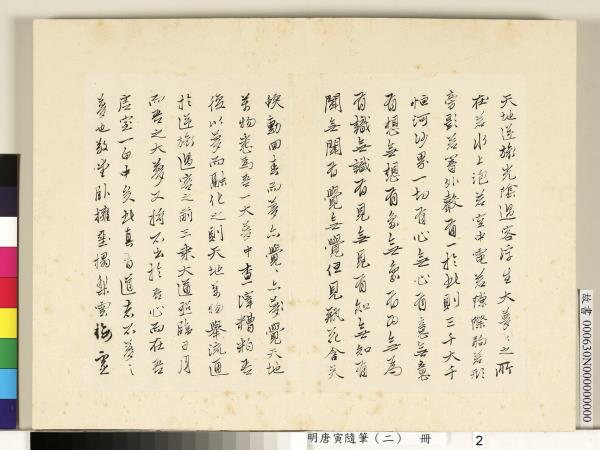 天地逆旅光陰過客浮生大夢〻之所
在若水上泡若空中電若隙駒若形
旁影若胥外聲有一於此則三千大千
恒河沙界一切有心無心有意無意
有想無想有象無象有為無為
有識無識有見無見有知無知有
聞無聞有覺無覺但見瓶花含笑
蝶動回春而夢亦覺〻亦夢覺天地
萬物悉為吾一大夢中查滓糟粕吾
復以夢而融化之則天地萬物舉流通
於逆旅過客之前三乘大道照臨日月
而吾之大夢又將不出於吾心而在吾
居室一白中矣此真有道者不夢〻
夢也敬堂臥擁
梨雲梅雪
故書 000630N000000000
明唐寅隨筆(二) 冊 2